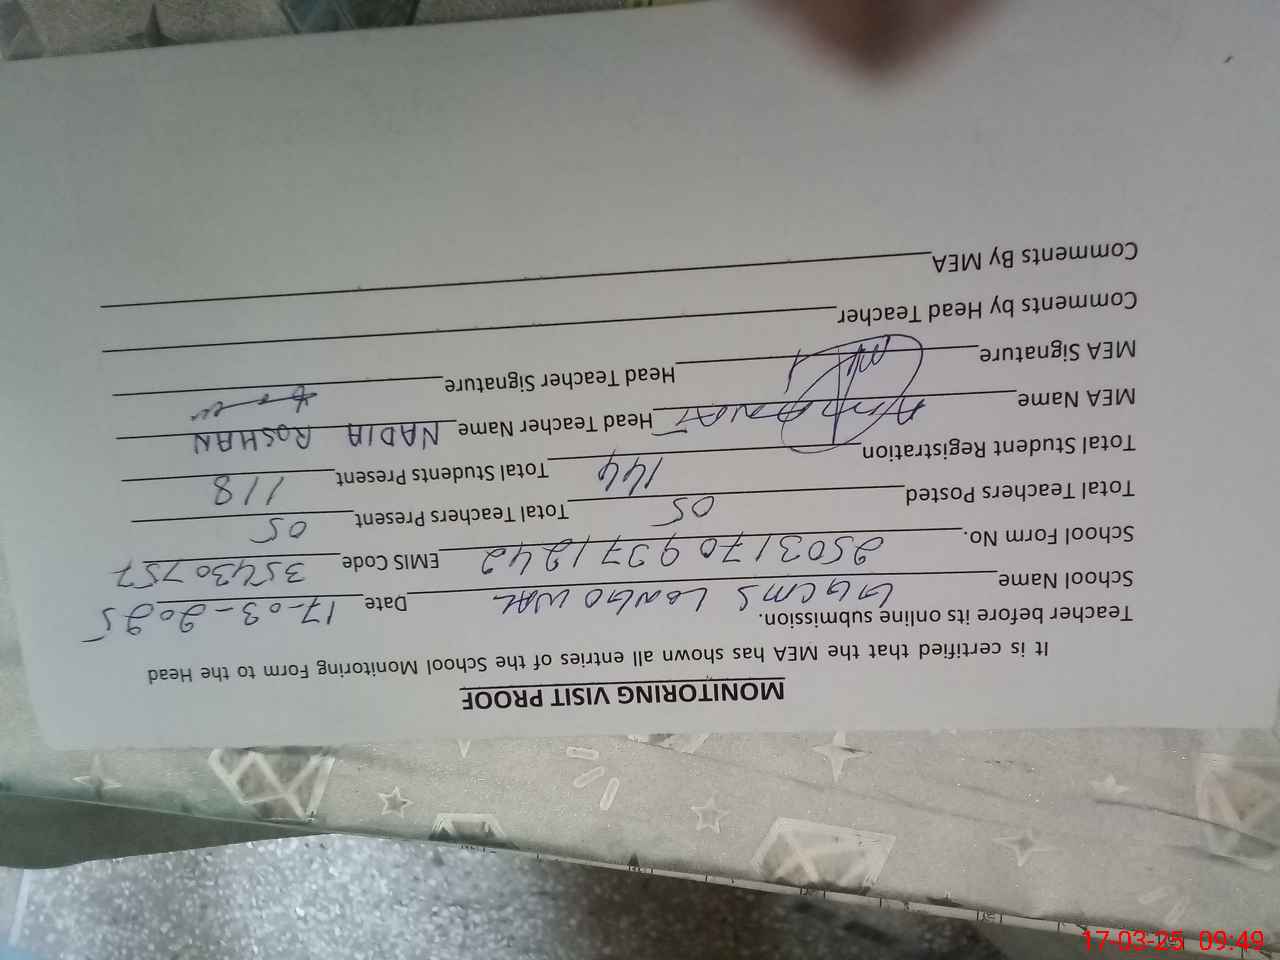 MONITORING VISIT PROOF
It is certified that the MEA has shown all entries of the School Monitoring Form to the Head
Teacher before its online submission.
School Name GGCMS LONGOWAL Date 17-03-2025
School Form No. 25031709371242 EMIS Code 35430757
Total Teachers Posted 05 Total Teachers Present 05
Total Student Registration 144 Total Students Present 118
MEA Name Head Teacher Name NADIA ROSHAN
MEA Signature Head Teacher Signature
Comments by Head Teacher
Comments By MEA
17-03-25 09:49